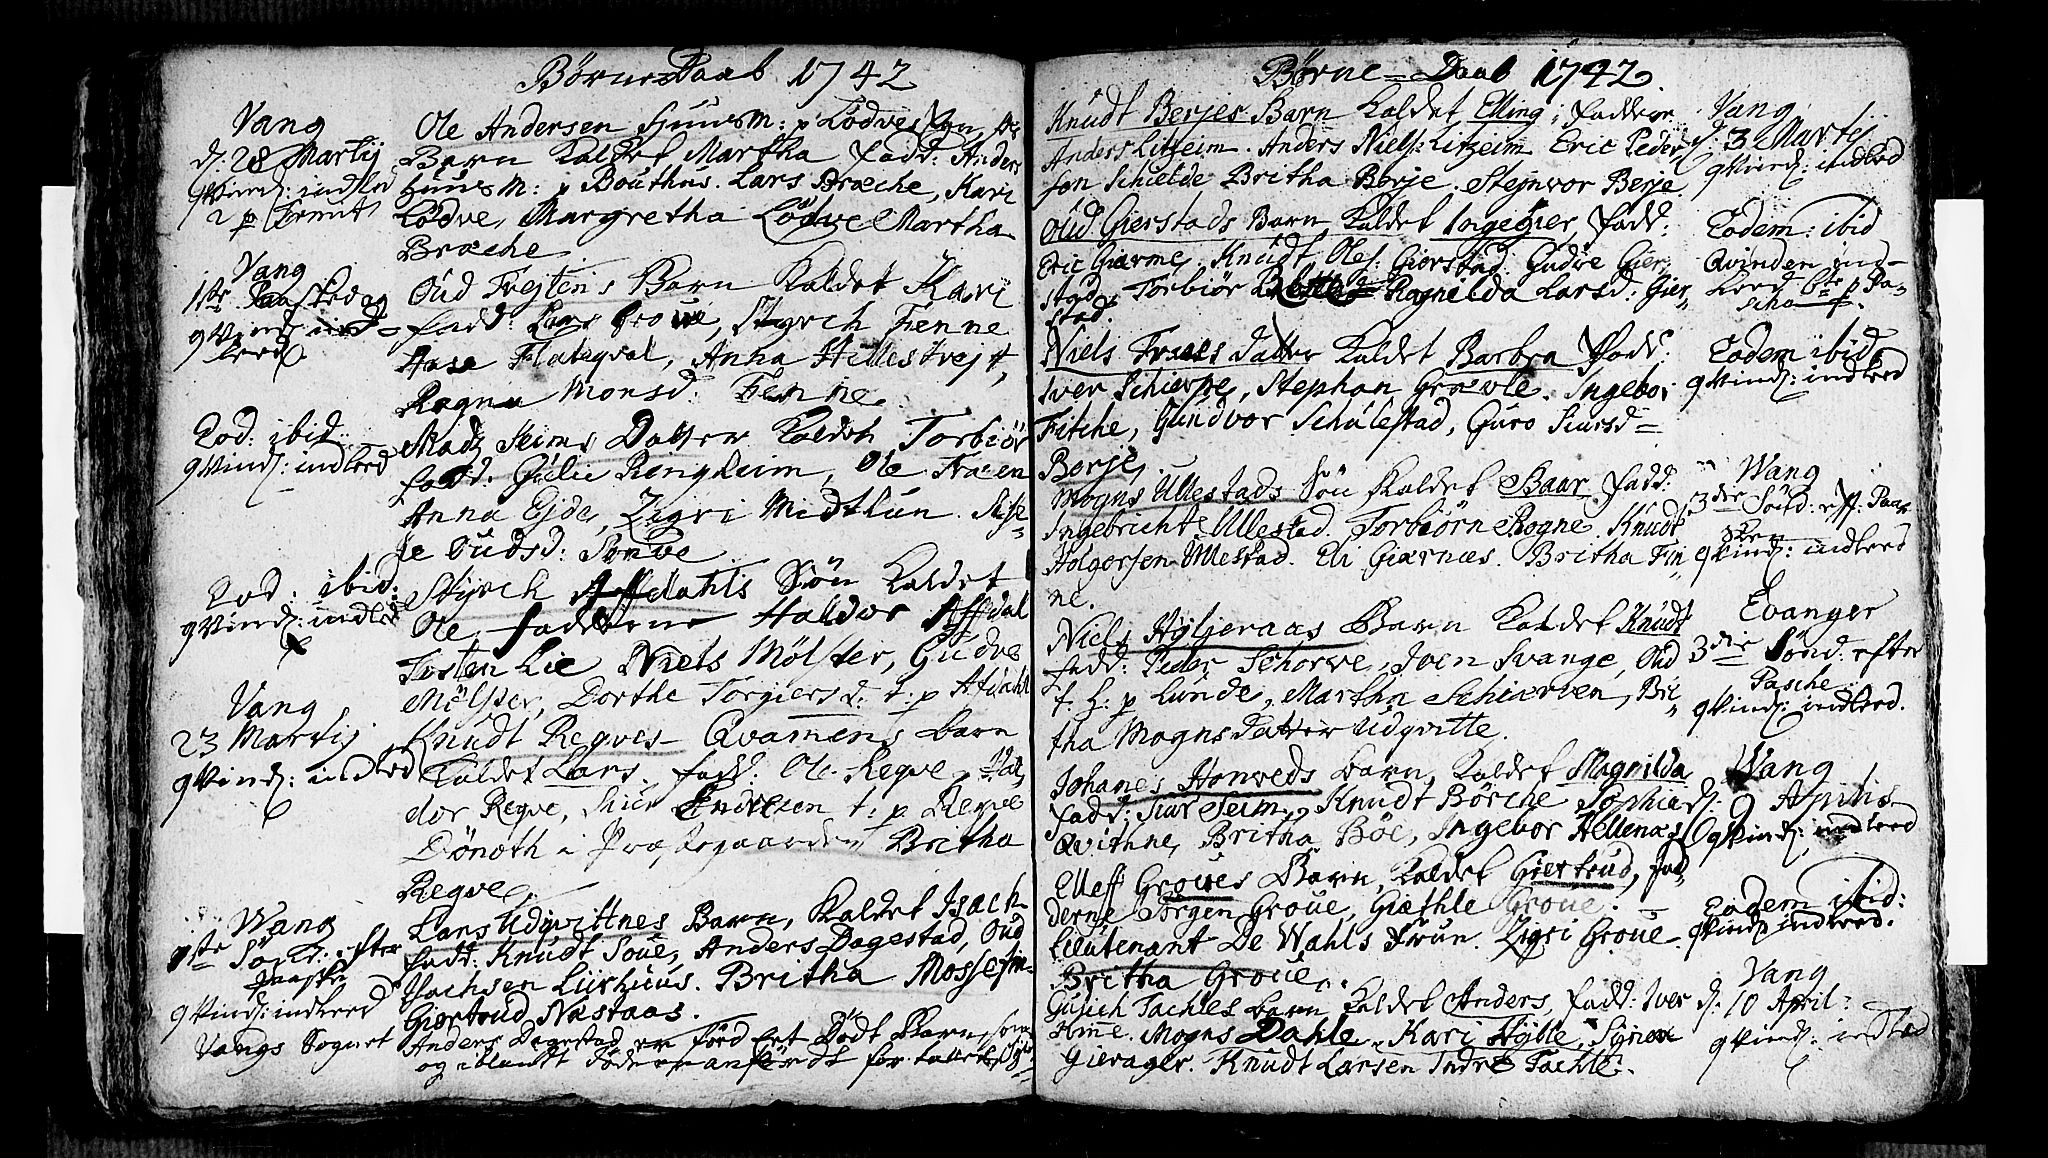 Børne Daab 1742
Vang
d. 28 Martij
qvind: indled
Ole Andersen Huusm: p Lødve
Barn Kaldet Martha fadd: Anders
Huusm: p Bouthus. Lars Bræche, Kari
Lødve, Margretha Lødve Martha
Bræche
Vang
1ste Paaskedag
qvind: ind-
leed
Oud Trejtens Barn Kaldet Kari
fadd: Lars Groue, Styrch Fenne
Aase Flateqval, Anna Hellestvejt,
Ragna Monsd: Fenne.
Eod: ibid
qvind: indleed
Madz Seims Datter Kaldet Torbiør
fadd: Gulic Ringheim, Ole Træen
Anna Ejde, Zigri Midtlun.
Oudsd:
Eod: ibid:
qvind: indled
Styrch Affdahls Søn Kaldet
Ole, fadderne Haldor Affdal
Tosten Lie Niels Mølster, Gudve
Mølster, Dorthe Torgiersd: t: p Afdahl
Vang
23 Martij
qvind: indled
Knudt Reqves Qvamens barn
Kaldet Lars. fadd: Ole Reqve, Hal-
dor Reqve, Endresen t: p Reqve
Dønoth i Præstegaarden Britha
Reqve.
Wang
1ste Sønd: efter
Paaske
qvind: indleed
Lars Udqvittnes Barn, Kaldet Isach
fadd: Knudt Soue, Anders Dagestad, Oud
Isachsen Liirhuus. Britha Mossefin
Giertrud Næstaas.
Vangs Sognet
Anders Dagestad er förd eet Dødt Barn, som
og iblandt døde er anført for
Børne-Daab 1742.
Knudt Berjes Barn Kaldet Elling; fadder
Anders Litzeim. Anders Niels: Litzeim Eric Peder-
søn Schielde Britha Berje. Stejnvor Berje
Vang
d: 3 Martij
qvind: indled
Olid Gierstads Barn Kaldet Ingegier, fadd:
Eric Giærme, Knudt Oles: Gierstad: Gudve Gier-
stad. Torbiør Ragnilda Larsd: Gier-
stad.
Eodem: ibid
Qvinden ind-
leed 6te p Pa-
scha
Niels Datter Kaldet Barbra fadd:
Iver Schierve, Stephan Græwle. Ingebor
Fitche, Gundvor Schulestad, Guro Siursd=
Berje.
Eodem ibid
qvind: indleed
Mogns Ullestads Søn Kaldet Baar fadd:
Ingebricht Ullestad. Torbiørn Rogne. Knudt
Holgersen Ullestad. Eli Giærnæs. Britha Fin
ne.
Wang
3die Sønd: eff: Paas
qvind: indleed
Niels Hyljernaas Barn Kaldet Knudt
fadd: Peder Schorve, Joen Svange, Olid
t. h: p Lunde, Martha Schierven, Bri-
tha Mogns datter Udqvitte.
Evanger
3die Sønd: efter
Pasche
qvind: indleed.
Johanes Honveds barn, Kaldet Magnilda
fadd: Siur Seim, Knudt Börche Sophie
Qvithne, Britha Bøe, Ingebor Hellenæs
Wang
d: 9 Aprilis
qvind: indleed
Elleff Groues Barn, Kaldet Giertrud, fad-
derne Jörgen Groue, Giethle Groue.
Lieutenant De Wahls Frun. Zigri Groue
Britha Groue.
Eodem ibid:
qvind indleed.
Gulich Tachles barn Kaldet Anders, fadd: Iver
Hme. Mogns Dahle, Kari Hylle, Synov
Gierager. Knudt Larsen Indre Tachle.
Vang
d. 10 April:
qvind: indled